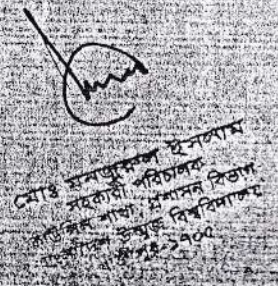 মোঃ মনজুরুল ইসলাম
সহকারী পরিচালক
কাউন্সিল শাখা, প্রশাসন বিভাগ
বাংলাদেশ উন্মুক্ত বিশ্ববিদ্যালয়
গাজীপুর-১৭০০